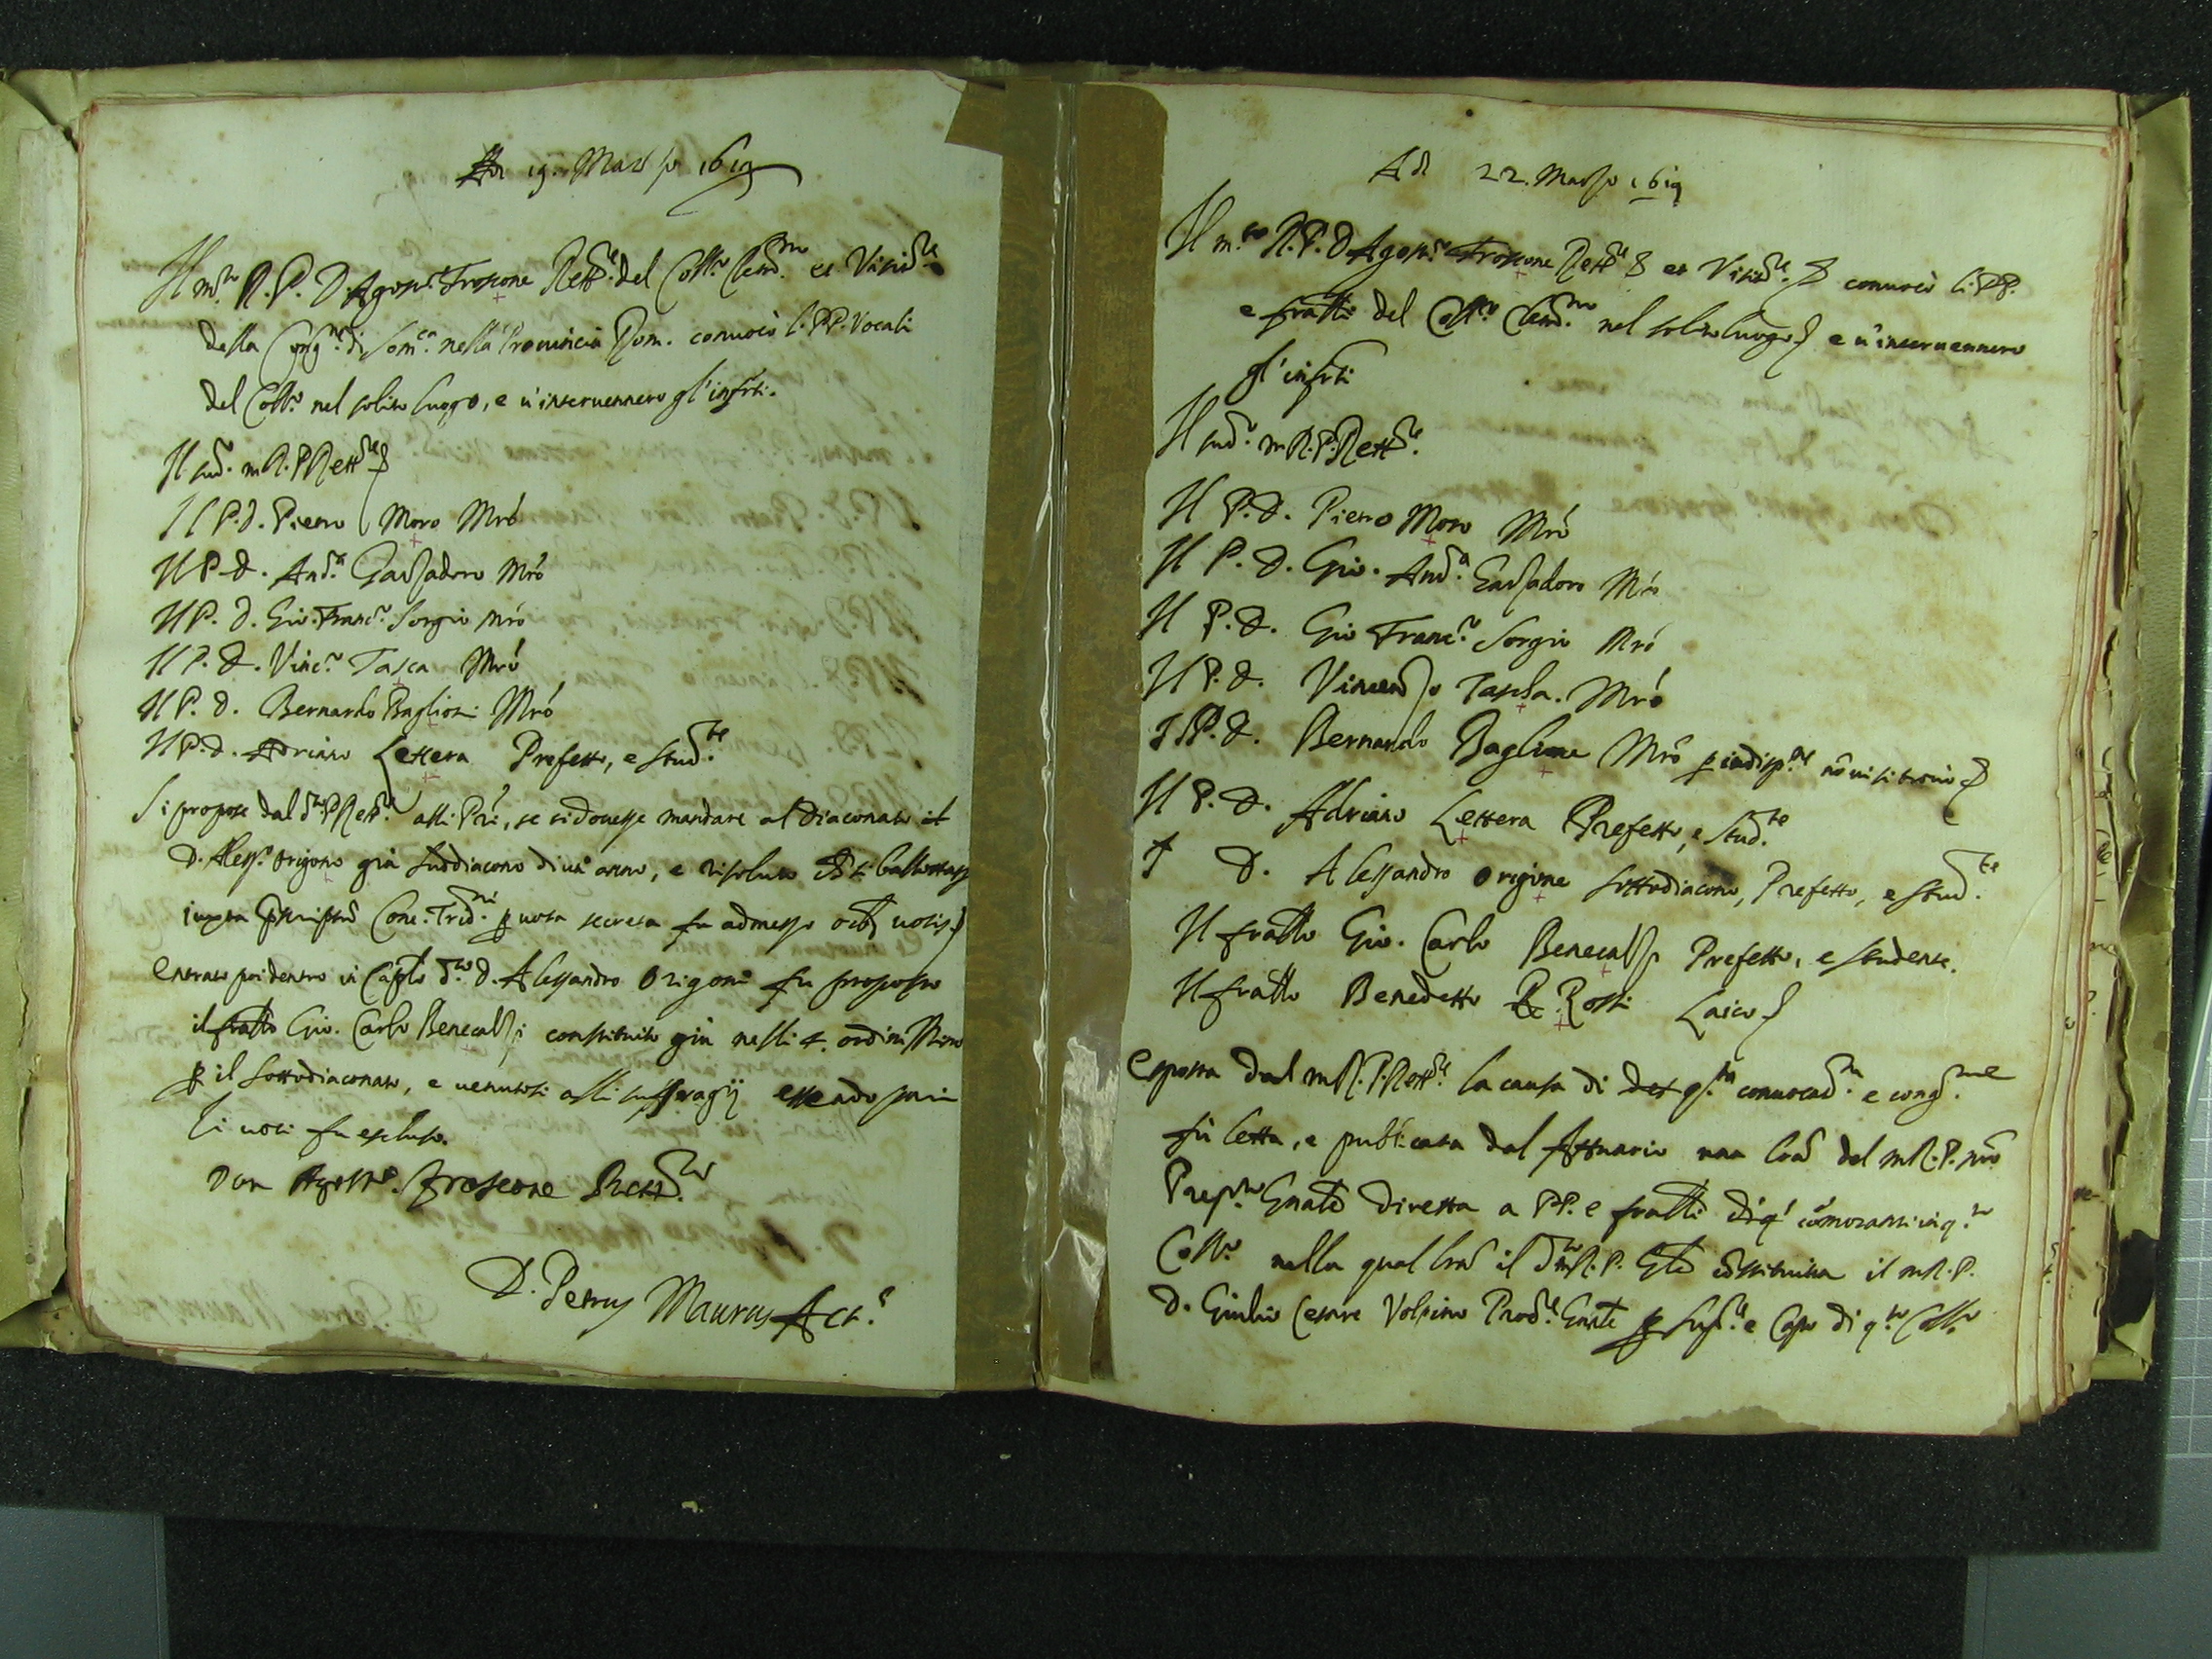 Adì 19. Marzo 1619
Il m.to R. P. D Agost.o Froscone Rett.re del Coll.o Clem.no et Visit.re
della Cong.ne di Som.ca nella Provincia Rom. convocò li PP. Vocali
del Coll.o nel solito luogo, e v'intervennero gl'infrti.
Il sud.o m R. P Rett.re
Il P. D. Pietro Moro Mró
Il P. D. And.a Garzadoro Mró
Il P. D. Gio. Franc.o Sorgio Mró
Il P. D. Vinc.o Tasca Mró
Il P. D. Bernardo Baglioni Mró
Il P. D. Adriano Lettera Prefetto, e Stud.te
Si propose dal d.to P Rett.re alli Pri, se si dovesse mandare al Diaconato il
D. Aless.o Origono già suddiacono di un anno, e risoluto si ballottasse
iuxta Conc. Trid.ni p vota secreta fu admesso votis
Entrato poi dentro in Caplo d.to D. Alessandro Origoni fu proposto
il fratto Gio. Carlo Benecalzi constituito già nelli 4. ordini
p il Sottodiaconato, e venutosi alli suffragij essendo pari
li voti fu escluso.
Don Agost.o froscone Rett.re
D. Petrus Maurus Act.s
Adì 22. Marzo 1619
Il m.to R. P. D Agost.o Froscone Rett.re et Visit.re convocò li PP.
e fratti del Coll.o Clem.no nel solito luogo e v'intervennero
gl'infrti
Il sud.o m R. P. Rett.re
Il P. D. Pietro Moro Mró
Il P. D. Gio. And.a Garzadoro Mró
Il P. D. Gio Franc.o Sorgio Mró
Il P. D. Vincenzo Tascha. Mró
Il P. D. Bernardo Baglione Mró p indisp.ne nõ vi si trovò
Il P. D. Adriano Lettera Prefetto, e Stud.te
D. Alessandro Origone sottodiacono, Prefetto, e stud.te
Il fratto Gio. Carlo Benecalzi Prefetto, e studente.
Il fratto Benedetto Rossi Laico
Esposta dal m R. P. Rett.re la causa di q.ta convocat.ne e cong.ne
fù letta, e publicata dal Attuario una lrã del m R. P. nro
Prep.to Gnale diretta a PP. e fratti di q. cõmoranti in q.to
Coll.o nella qual lrã il d.to m R. P. Gle cõstituiva il m R. P.
D. Giulio Cesare Volpino Proc.re Gnale p Sup.re e Capo di q.to Coll.o